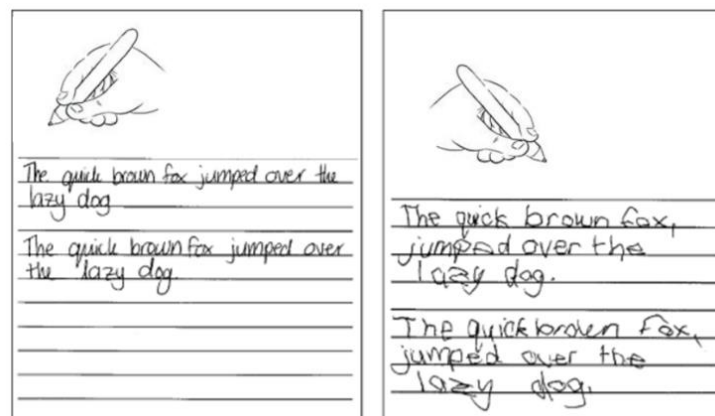 The quick brown fox jumped over the
lazy dog
The quick brown fox jumped over
the lazy dog
The quick brown fox,
jumped over the
lazy dog.
The quick brown fox,
jumped over the
lazy dog.